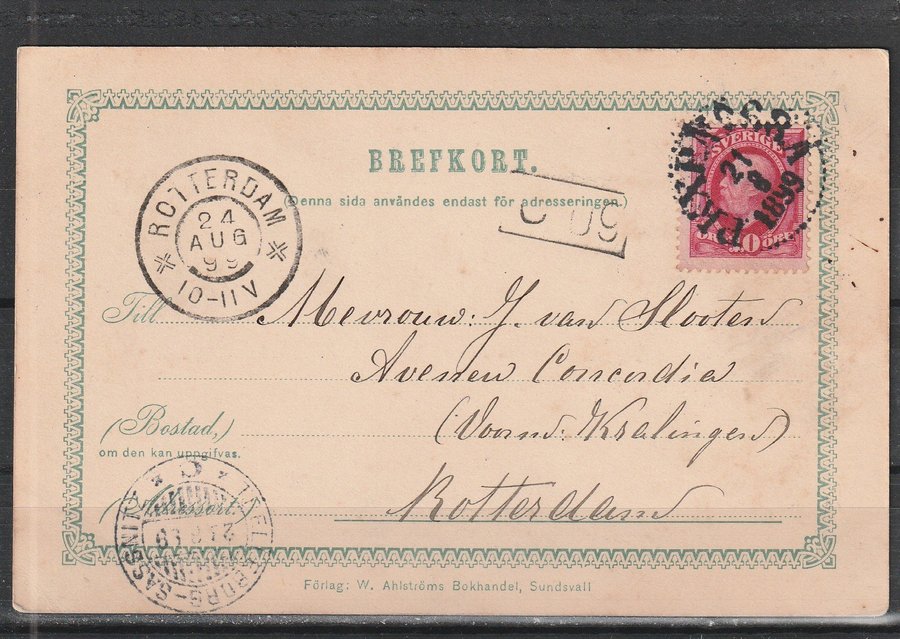 BREFKORT.
(Denna sida användes endast för adresseringen.)
ROTTERDAM
24
AUG
99
10-11 V
SVERIGE
21
8
1899
PKXP.N
10 ÖRE
Till Mevrouw: J. van Slooten
Avenen Concordia
(Bostad,) (Voorm: Kralingen)
om den kan uppgifvas.
Rotterdam
TRELLEBORG-SASSNITZ
Förlag: W. Ahlströms Bokhandel, Sundsvall